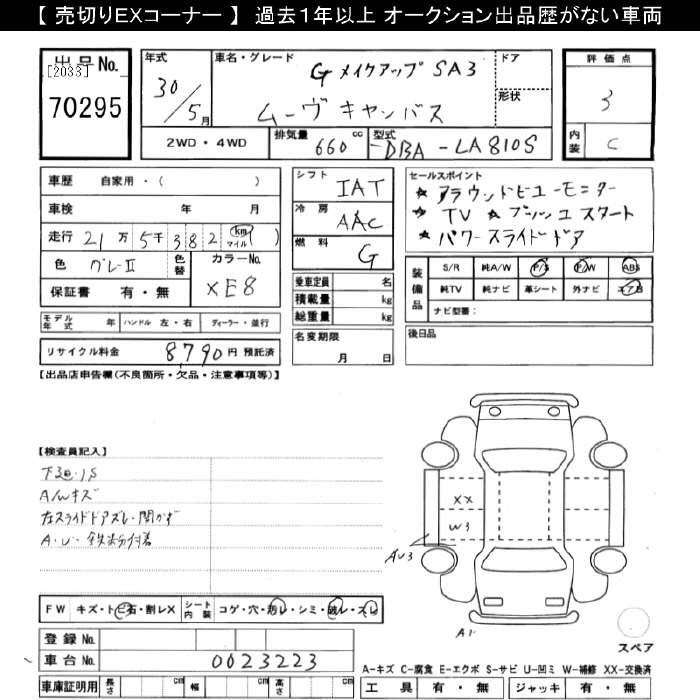 【 売切りEXコーナー 】 過去1年以上 オークション出品歴がない車両
出品No.
[2033]
70295
年式
30/5月
車名・グレード
G メイクアップ SA3
ムーヴ キャンバス
ドア
形状
評価点
3
内装
C
2WD・4WD
排気量 660 cc
型式 DBA-LA810S
車歴 自家用・( )
車検 年 月
走行 21万5千382 km マイル ( )
色 グレーⅡ
色替
カラーNo. XE8
保証書 有・無
シフト IAT
冷房 AAC
燃料 G
乗車定員 名
積載量 kg
総重量 kg
セールスポイント
★アラウンドビューモニター
★TV ★プッシュスタート
★パワースライドドア
装備品
S/R 純A/W P/S P/W ABS
純TV 純ナビ 革シート 外ナビ エアB
ナビ型番:
モデル年式 年 ハンドル 左・右 ディーラー・並行
名変期限
月 日
後日品
リサイクル料金 8790円 預託済
【出品店申告欄(不良箇所・欠品・注意事項等)】
【検査員記入】
下廻.1S
A/Wキズ
左スライドドアズレ・開かず
A・U・鉄粉付着
XX
W3
AU3
A1
FW キズ・ト ビ石・割レX
シート内装 コゲ・穴・汚レ・シミ・破レ・スレ
スペア
登録No.
車台No. 0023223
A-キズ C-腐食 E-エクボ S-サビ U-凹ミ W-補修 XX-交換済
車庫証明用 長さ cm 幅 cm 高さ cm
工具 有・無 ジャッキ 有・無